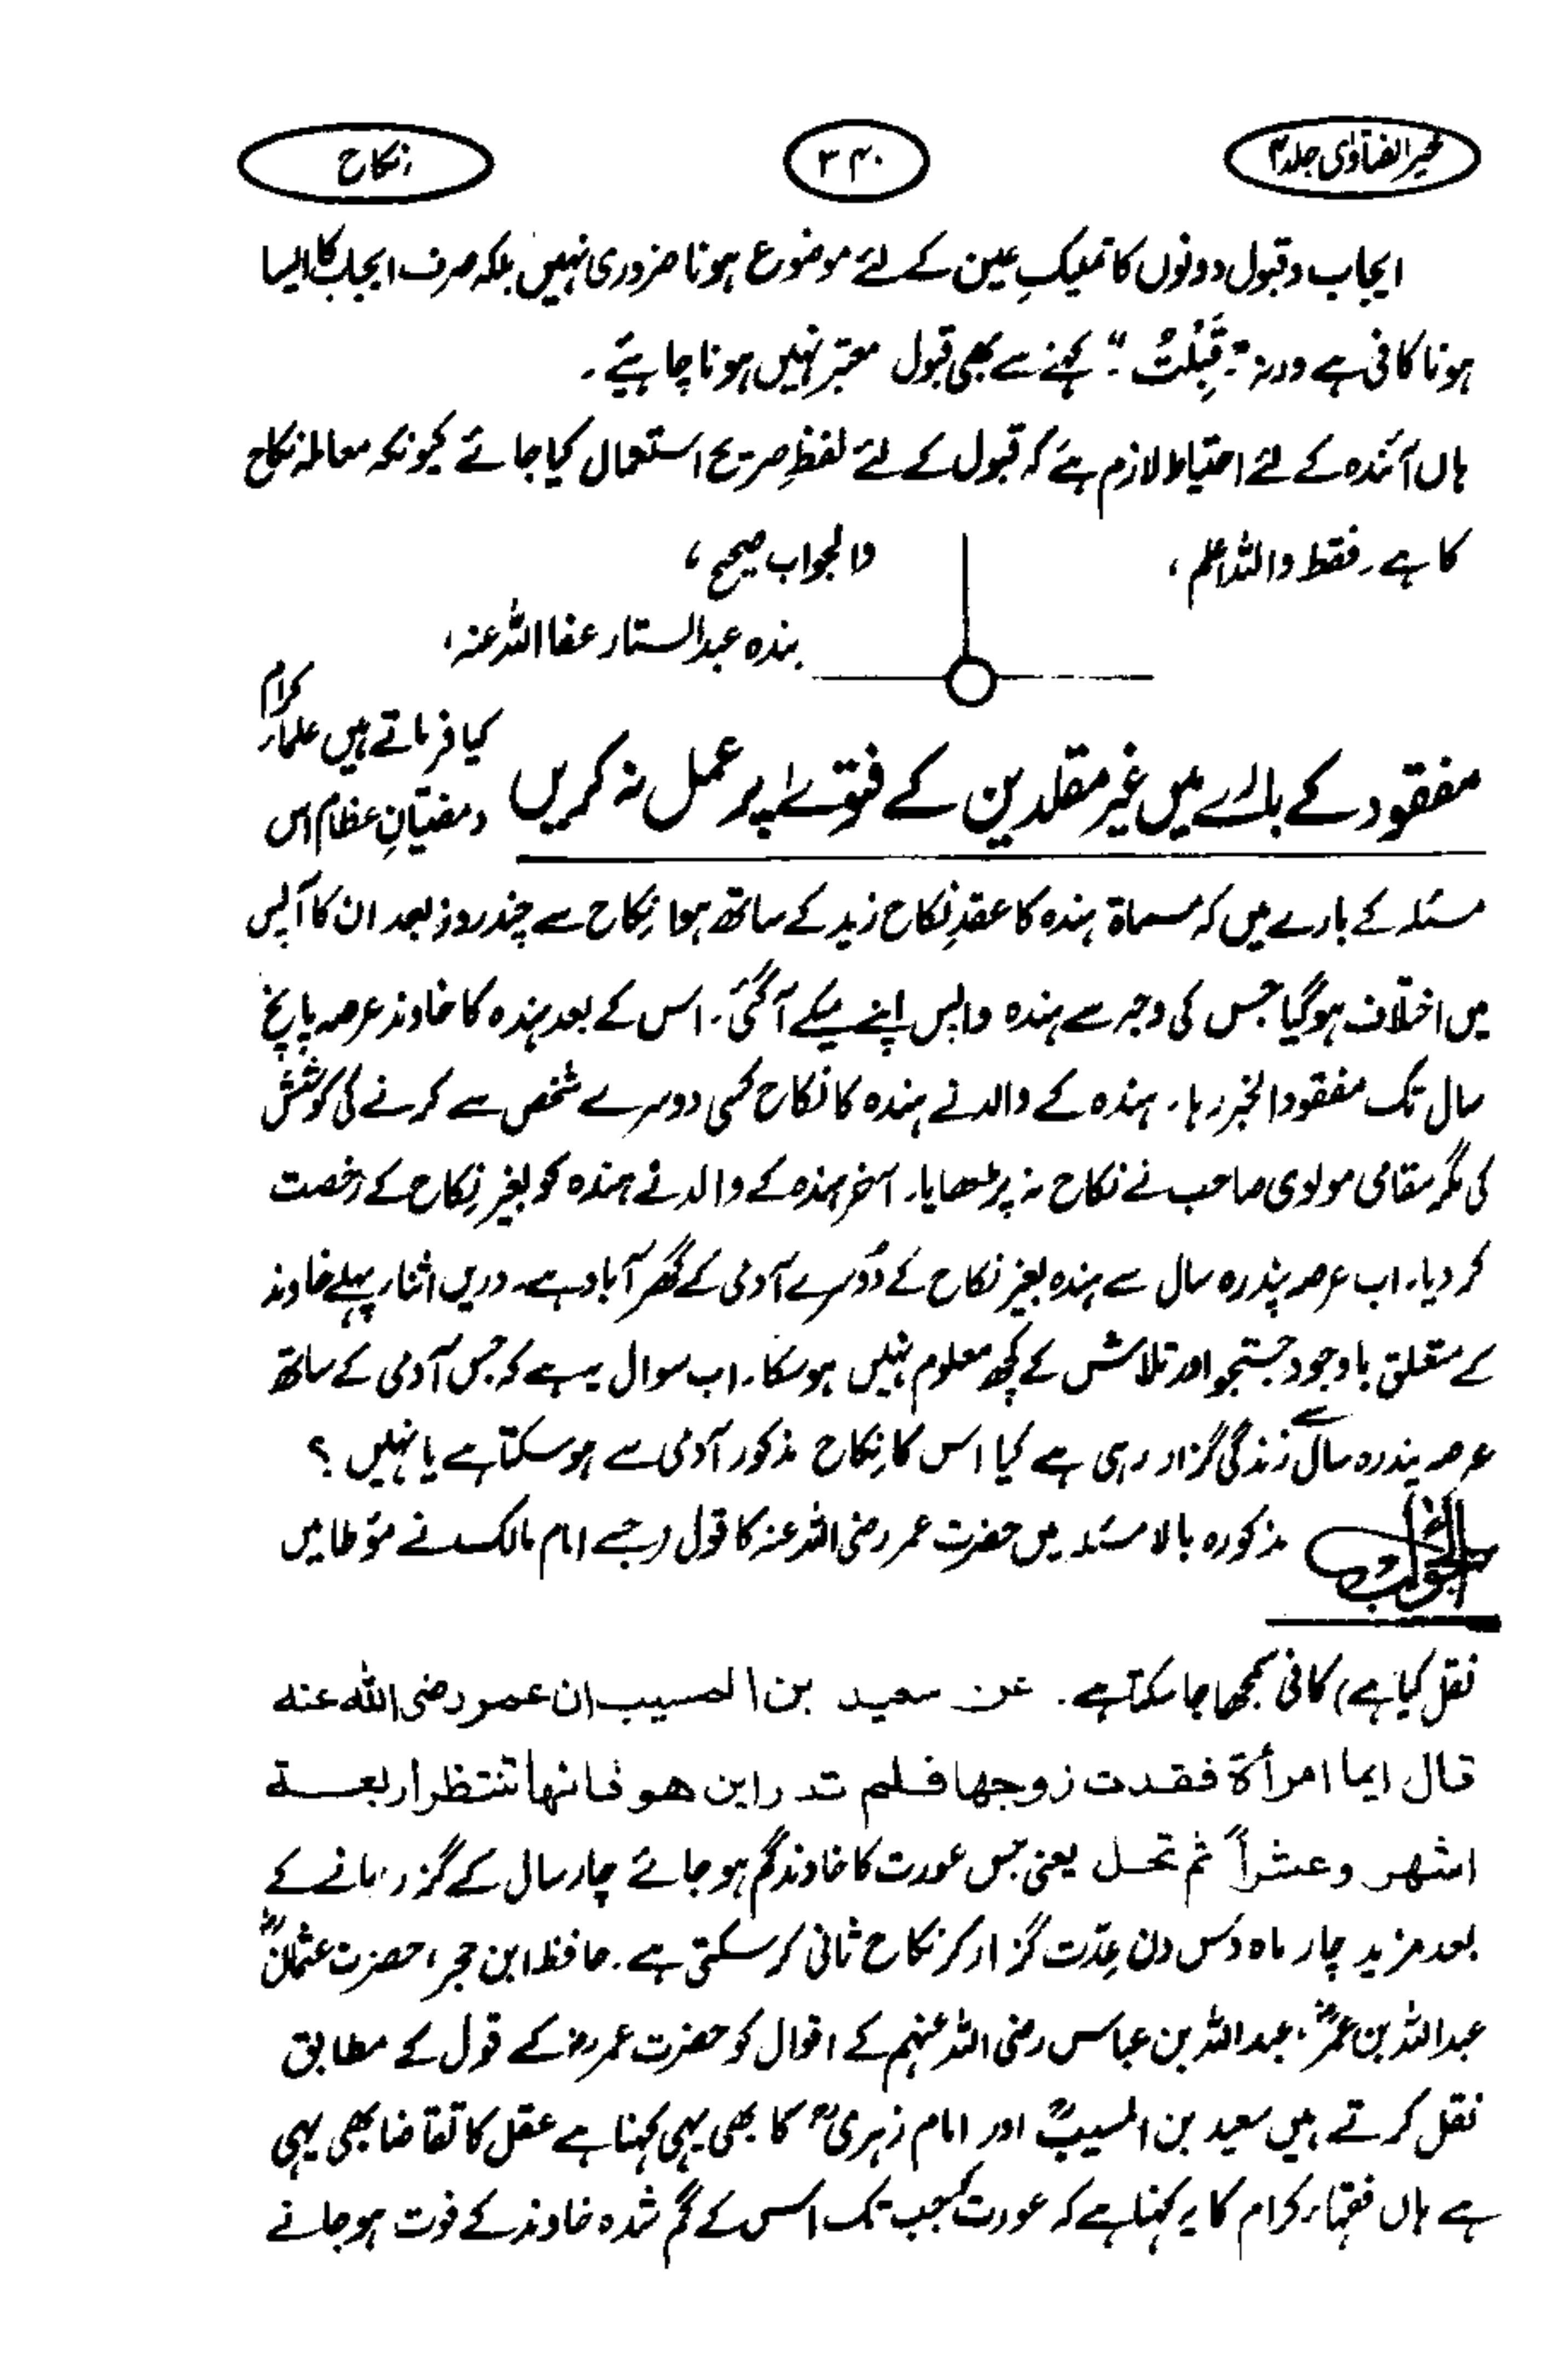 خیر الفتاوٰی جلد ۴
۳۴۰
نکاح
ایجاب و قبول دونوں کا تملیکِ عین کے لئے موضوع ہونا ضروری نہیں بلکہ صرف ایجاب کا ایسا
ہونا کافی ہے ورنہ "قَبِلْتُ" کہنے سے بھی قبول معتبر نہیں ہونا چاہیئے۔
ہاں آئندہ کے لئے احتیاط لازم ہے کہ قبول کے لئے لفظِ صریح استعمال کیا جائے کیونکہ معاملہ نکاح
کا ہے۔ فقط واللہ اعلم،
والجواب صحیح،
بندہ عبدالستار عفا اللہ عنہ،
مفقود کے بارے میں غیر مقلدین کے فتوے پر عمل نہ کریں
کیا فرماتے ہیں علماء کرام
و مفتیانِ عظام اس
مسئلہ کے بارے میں کہ مسماۃ ہندہ کا عقدِ نکاح زید کے ساتھ ہوا نکاح سے چند روز بعد ان کا آپس
میں اختلاف ہوگیا جس کی وجہ سے ہندہ واپس اپنے میکے آگئی۔ اس کے بعد ہندہ کا خاوند عرصہ پانچ
سال تک مفقود الخبر رہا۔ ہندہ کے والد نے ہندہ کا نکاح کسی دوسرے شخص سے کرنے کی کوشش
کی مگر مقامی مولوی صاحب نے نکاح نہ پڑھایا۔ آخر ہندہ کے والد نے ہندہ کو بغیر نکاح کے رخصت
کر دیا۔ اب عرصہ پندرہ سال سے ہندہ بغیر نکاح کے دوسرے آدمی کے گھر آباد ہے۔ دریں اثناء پہلے خاوند
کے متعلق باوجود جستجو اور تلاش کے کچھ معلوم نہیں ہوسکا۔ اب سوال یہ ہے کہ جس آدمی کے ساتھ
عرصہ پندرہ سال سے زندگی گزار رہی ہے کیا اس کا نکاح مذکور آدمی سے ہوسکتا ہے یا نہیں ؟
الجواب
مذکورہ بالا مسئلہ میں حضرت عمر رضی اللہ عنہ کا قول (جسے امام مالک نے مؤطا میں
نقل کیا ہے) کافی سمجھا جاسکتا ہے۔ عن سعید بن المسیب ان عمر رضی اللہ عنہ
قال ایما امرأۃ فقدت زوجہا فلم تدر این ہو فانہا تنتظر اربعۃ
اشہر وعشراً ثم تحل یعنی جس عورت کا خاوند گم ہو جائے چار سال کے گزر جانے کے
بعد مزید چار ماہ دس دن عِدّت گزار کر نکاح ثانی کرسکتی ہے۔ حافظ ابن حجر، حضرت عثمانؓ
عبداللہ بن عمرؓ، عبداللہ بن عباس رضی اللہ عنہم کے اقوال کو حضرت عمرؓ کے قول کے مطابق
نقل کرتے ہیں سعید بن المسیبؒ اور امام زہریؒ کا بھی یہی کہنا ہے عقل کا تقاضا بھی یہی
ہے ہاں فقہاء کرام کا یہ کہنا ہے کہ عورت کو جب تک اس کے گم شدہ خاوند کے فوت ہوجانے